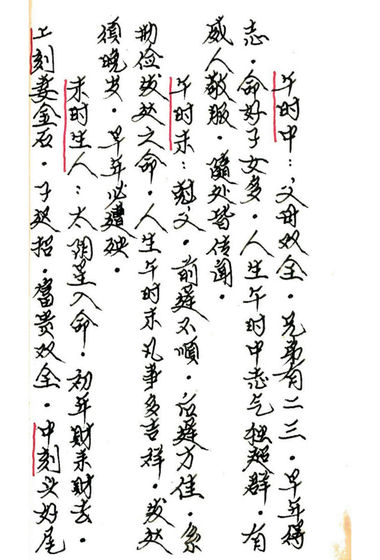 午时中：父母双全．兄弟有二三．早年得
志．命好子女多．人生午时中志气独超群．有
威人敬服．随处皆传闻．
午时末：克父．前運不顺．后運方佳．
勤俭发达之命．人生午时末凡事多吉祥．发达
须晚岁．早年必遭殃．
未时生人：太阴星入命．初年财来财去．
上刻妻金石．子贵招．富贵双全．中刻好尾